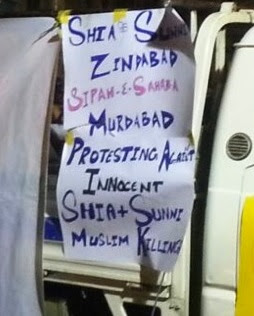 SHIA & SUNNI
ZINDABAD
SIPAH-E-SAHABA
MURDABAD
PROTESTING AGAINST
INNOCENT
SHIA + SUNNI
MUSLIM KILLING